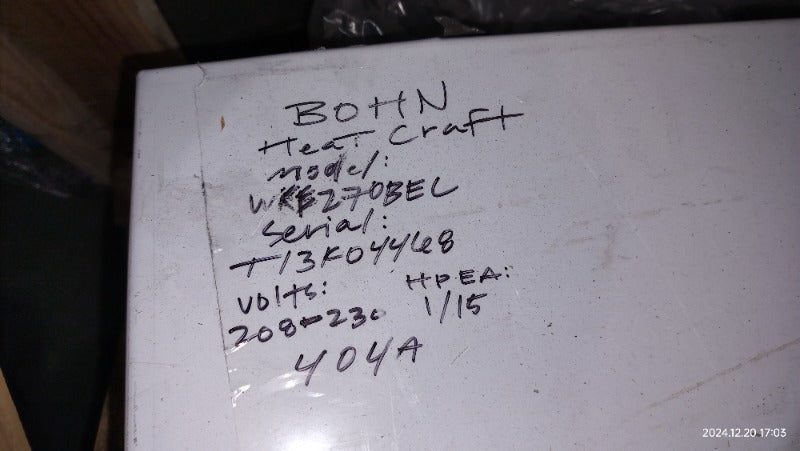 BOHN
HeaT Craft
Model:
WKE270BEL
Serial:
T13K04468
Volts:
208-230
HPEA:
1/15
404A
2024.12.20 17:03